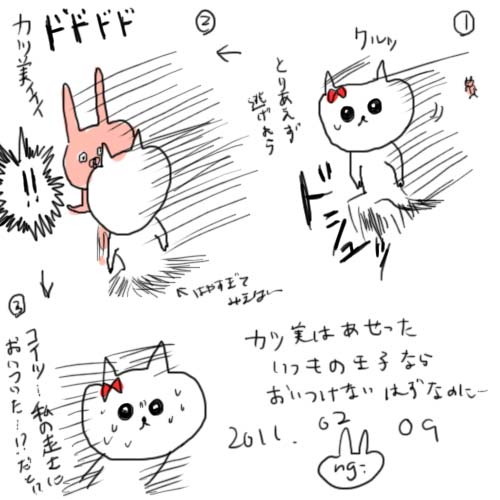 ①
クルッ
とりあえず
逃げよう
ドシュッ
②
ドドドド
カツ美イイイ
!!
はやすぎて
みえない
③
コイツ…私の走りに
おいついた…!?だと!?
カツ美はあせった
いつもの王子なら
おいつけないはずなのに…
2011. 02 09
ng: